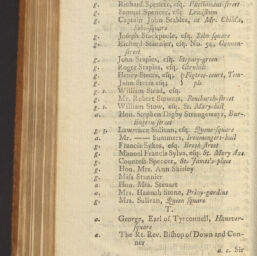 g. Richard Spencer, esq. Philliman-street
g. Samuel Spencer, esq. Lewisham
g. Captain John Stables, at Mr. Child's,
Soho-square
g. Joseph Stackpoole, esq. Soho square
g. Richard Stannier, esq. No. 54, Cannon-
street
g. John Staples, esq. Stepney-green
g. Roger Staples, esq. Cornhill
g. Henry Steers, esq.
g. John Steers, esq.
g. William Stead, esq.
g. Mr. Robert Stewart, Fenchurch-street
g. William Stow, esq. St. Mary-hill
a. Hon. Stephen Digby Strangeways, Bur-
lington street
g. p. Lawrence Sulivan, esq. Queen-square
a. Mr. —— Summers, Ironmongers-hall
g. Francis Sykes, esq. Brook street
g. Manuel Francis Sylva, esq. St. Mary Axe
g. Countess Spencer, St. James's place
g. Hon. Mrs. Ann Shirley
g. Miss Stannier
a. Hon. Mrs. Steuart
a. Mrs. Hannah Stone, Privy-gardens
g. Mrs. Sulivan, Queen square
T.
a. George, Earl of Tyrconnell, Hanover-
square
a. The Rt. Rev. Bishop of Down and Con-
ner
a. c. Sir